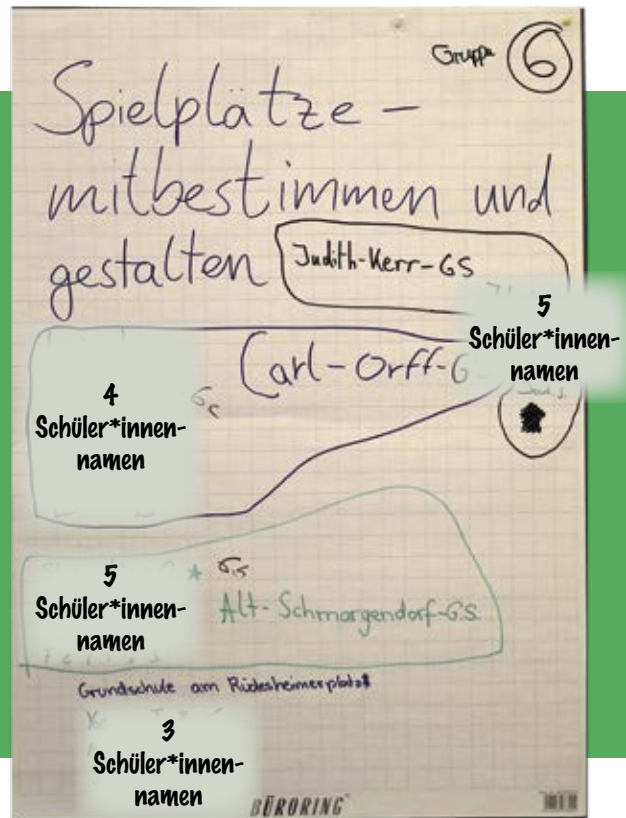 Gruppe 6
Spielplätze –
mitbestimmen und
gestalten
Judith-Kerr-GS
5
Schüler*innen-
namen
Carl-Orff-G
4
Schüler*innen-
namen
5
Schüler*innen-
namen
Alt-Schmargendorf-GS.
Grundschule am Rüdesheimerplatz
3
Schüler*innen-
namen
BÜRORING